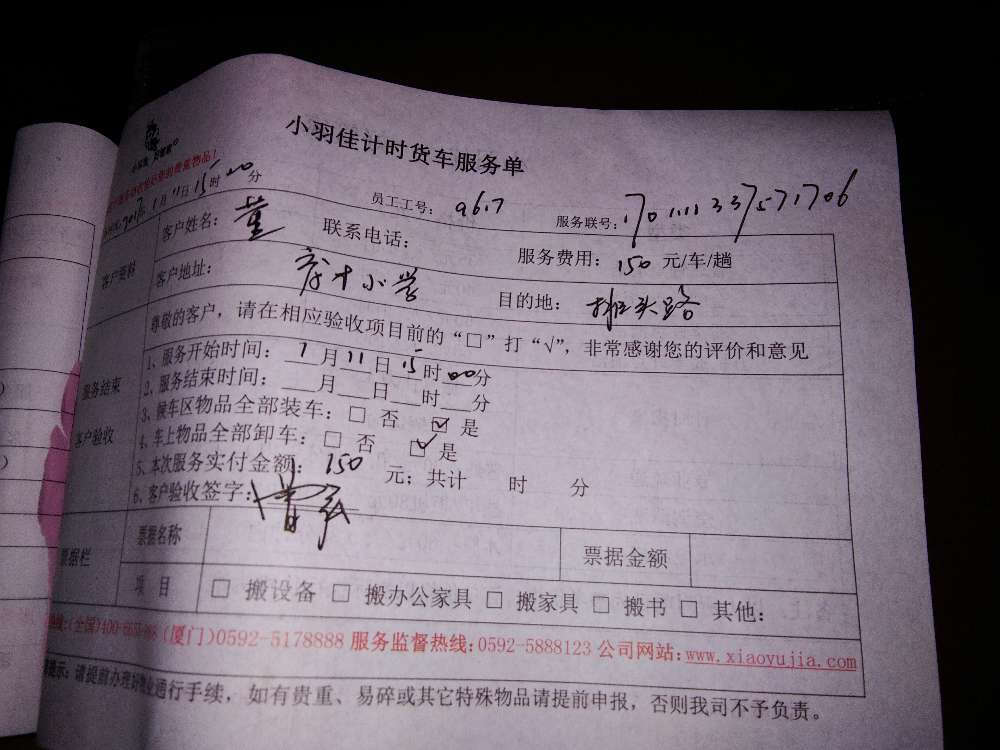 小羽佳计时货车服务单
贵重物品！
2017年1月11日15时00分
员工工号：9617 服务联号：1701111337571706
客户资料
客户姓名：董 联系电话： 服务费用：150元/车/趟
客户地址： 小学 目的地：排头路
尊敬的客户，请在相应验收项目前的“□”打“√”，非常感谢您的评价和意见
服务结束
客户验收
1、服务开始时间：1月11日15时00分
2、服务结束时间：___月___日___时___分
3、候车区物品全部装车：□ 否 ☑ 是
4、车上物品全部卸车：□ 否 ☑ 是
5、本次服务实付金额：150 元；共计 时 分
6、客户验收签字：
票据栏
票据名称 票据金额
项 目 □ 搬设备 □ 搬办公家具 □ 搬家具 □ 搬书 □ 其他：
(全国)400- (厦门)0592-5178888 服务监督热线：0592-5888123 公司网站：www.xiaoyujia.com
提示：请提前办理好物业通行手续，如有贵重、易碎或其它特殊物品请提前申报，否则我司不予负责。